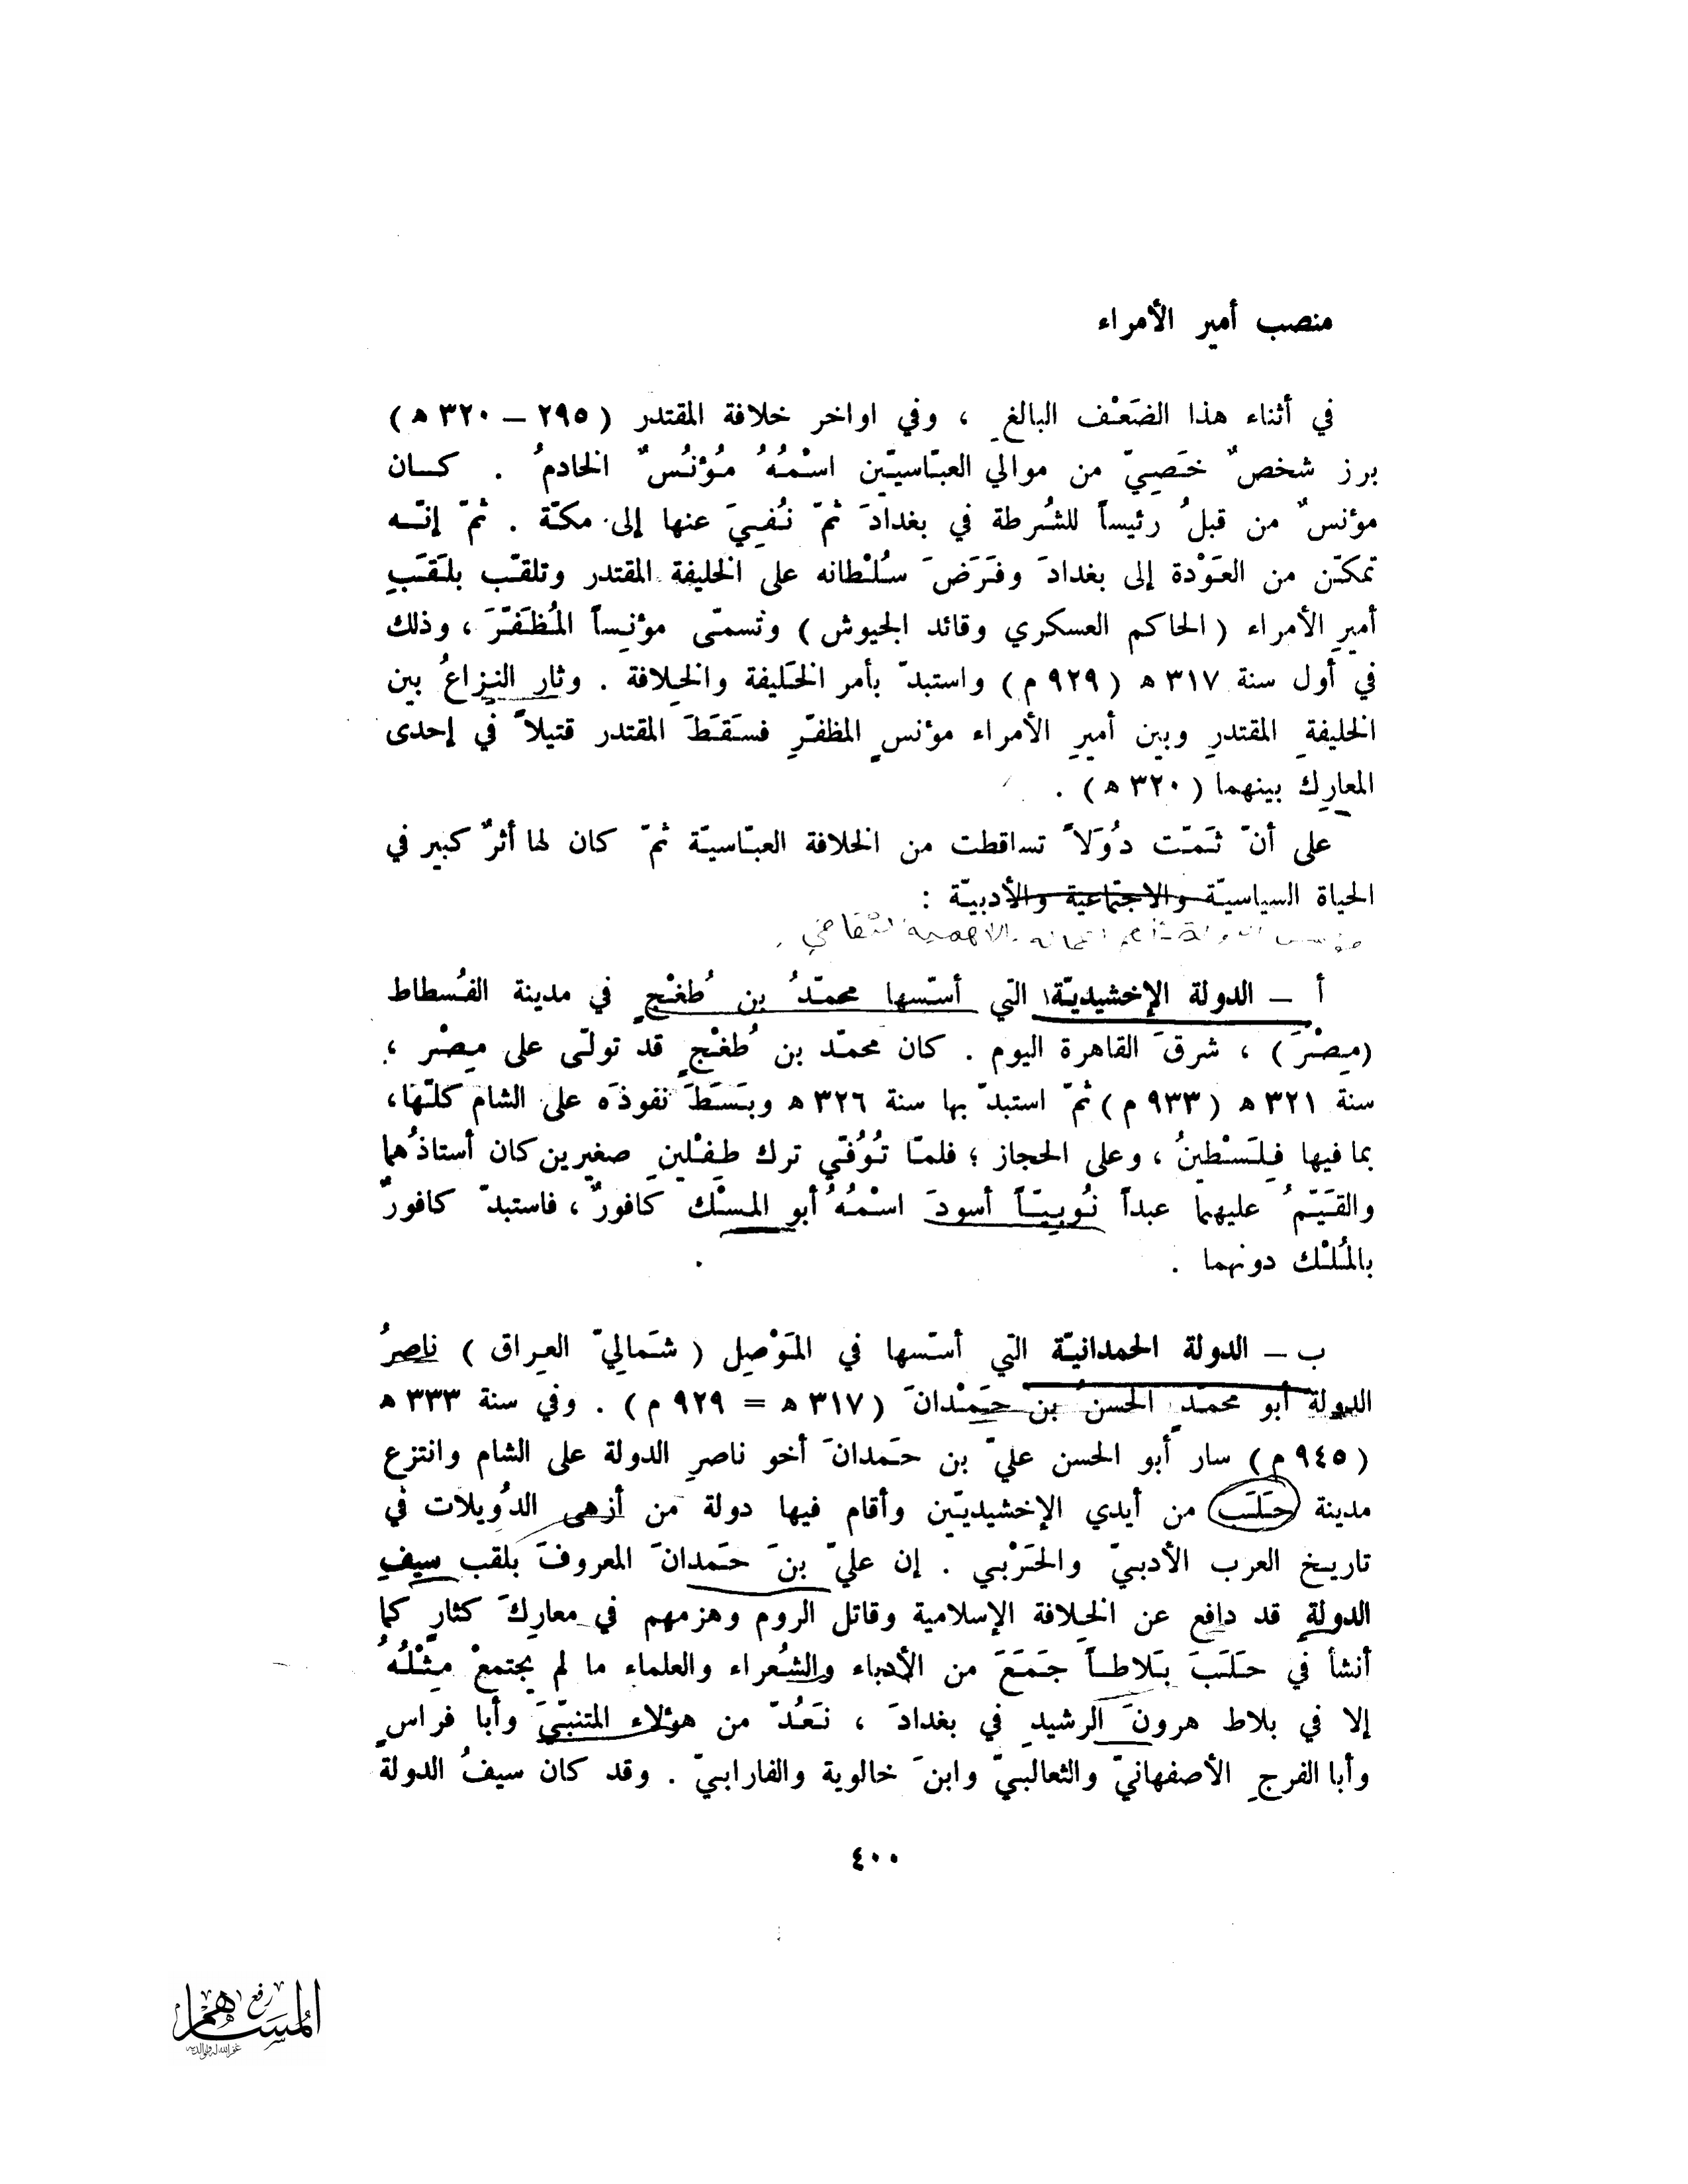 منصب أمير الأمراء
في أثناء هذا الضَعْف البالغِ ، وفي اواخر خلافة المقتدر (٢٩٥ – ٣٢٠ ه)
برز شخصٌ خَصِيّ من موالي العبّاسيّين اسْمُهُ مُؤنُسٌ الخادمُ . كان
مؤنسٌ من قبلُ رئيساً للشُرطة في بغدادَ ثمّ نُفِيَ عنها إلى مكّة . ثمّ إنّه
تمكّن من العَوْدة إلى بغدادَ وفَرَضَ سُلْطانه على الخليفة المقتدر وتلقّب بلَقَبِ
أميرِ الأمراء (الحاكم العسكري وقائد الجيوش) وتسمّى مؤنِساً المُظَفّرَ ، وذلك
في أول سنة ٣١٧ ه (٩٢٩ م) واستبدّ بأمر الخَليفة والخِلافة . وثار النِزاعُ بين
الخليفةِ المقتدرِ وبين أميرِ الأمراء مؤنسٍ المظفّرِ فسَقَطَ المقتدر قتيلاً في إحدى
المعارِك بينهما (٣٢٠ ه) .
على أنّ ثَمّت دُوَلاً تساقطت من الخلافة العبّاسيّة ثمّ كان لها أثرٌ كبير في
الحياة السياسيّة والاجتماعية والأدبيّة :
أ – الدولة الإخشيديّة التي أسّسها محمّدُ بن طُغْجٍ في مدينة الفُسطاط
(مِصْرَ) ، شرقَ القاهرة اليوم . كان محمّد بن طُغْجٍ قد تولّى على مِصْر ،
سنة ٣٢١ ه (٩٣٣ م) ثمّ استبدّ بها سنة ٣٢٦ ه وبَسَطَ نفوذَه على الشام كلّها،
بما فيها فِلَسْطينُ ، وعلى الحجاز ؛ فلمّا تُوُفّي ترك طِفْلينِ صغيرين كان أستاذُهما
والقَيّمُ عليهما عبداً نُوبِيّاً أسودَ اسْمُهُ أبو المسْك كافورٌ ، فاستبدّ كافورٌ
بالمُلْك دونهما .
ب – الدولة الحمدانيّة التي أسّسها في المَوْصِل (شَماليّ العراق) ناصرُ
الدولة أبو محمّدٍ الحسنُ بن حَمْدانَ (٣١٧ ه = ٩٢٩ م) . وفي سنة ٣٣٣ ه
(٩٤٥ م) سار أبو الحسن عليّ بن حَمدانَ أخو ناصرِ الدولة على الشام وانتزع
مدينة حَلَب من أيدي الإخشيديّين وأقام فيها دولة من أزهى الدُويلات في
تاريخ العرب الأدبيّ والحَرْبي . إن عليّ بنَ حَمدانَ المعروفَ بلقب سيفِ
الدولةِ قد دافع عن الخِلافة الإسلامية وقاتل الروم وهزمهم في معارِكَ كثارٍ كما
أنشأ في حَلَبَ بَلاطاً جَمَعَ من الأدباء والشُعراء والعلماء ما لم يجتمعْ مِثْلُهُ
إلا في بلاط هرونَ الرشيدِ في بغدادَ ، نَعُدّ من هؤلاء المتنبّيَ وأبا فراسٍ
وأبا الفرجِ الأصفهانيّ والثعالبيّ وابنَ خالوية والفارابيّ . وقد كان سيفُ الدولة
٤٠٠
رفع
المساهم
غفر الله له ولوالديه